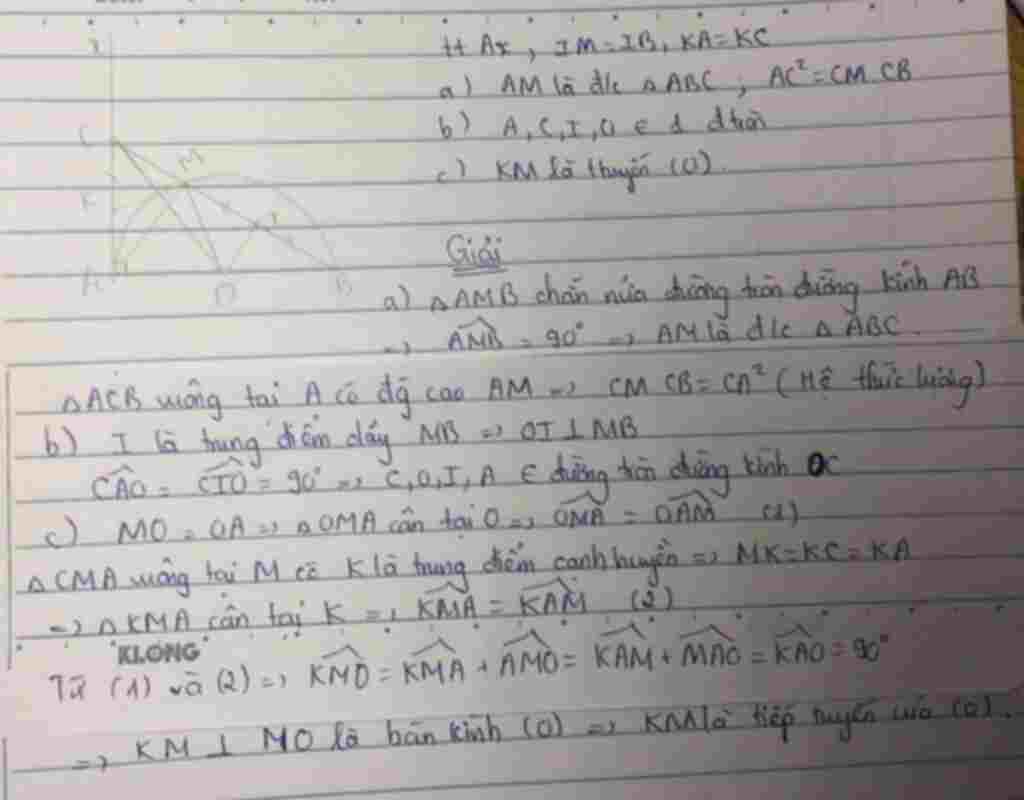 tt Ax, IM=IB, KA=KC
a) AM là đ/c △ABC; AC²=CM.CB
b) A, C, I, O ∈ 1 đ tròn
c) KM là thuyến (O).
x
C
M
K
I
A
O
B
Giải
a) △AMB chắn nửa đường tròn đường kính AB
=> AMB = 90° => AM là đ/c △ABC.
△ACB vuông tại A có độ cao AM => CM CB = CA² (Hệ thức lượng)
b) I là trung điểm dây MB => OI ⊥ MB
CAO = CIO = 90° => C, O, I, A ∈ đường tròn đường kính OC
c) MO = OA => △OMA cân tại O => OMA = OAM (1)
△CMA vuông tại M có K là trung điểm cạnh huyền => MK=KC=KA
=> △KMA cân tại K => KMA = KAM (2)
"KLONG"
Từ (1) và (2) => KMO = KMA + AMO = KAM + MAO = KAO = 90°
=> KM ⊥ MO là bán kính (O) => KM là tiếp tuyến của (O).